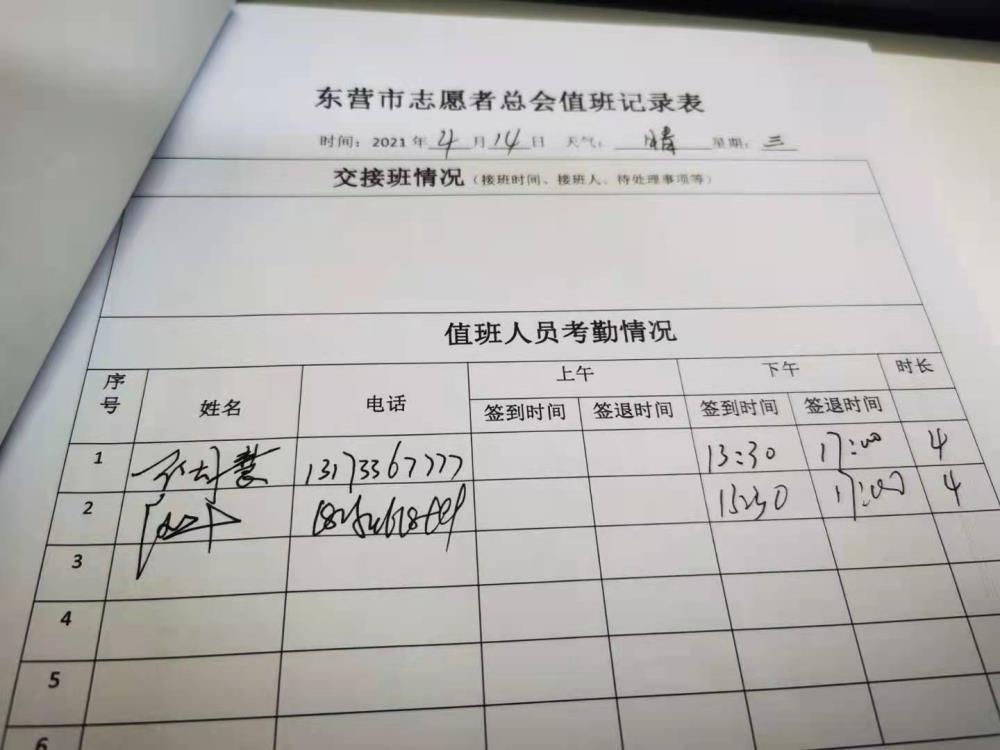 东营市志愿者总会值班记录表
时间：2021年4月14日 天气：晴 星期：三
交接班情况（接班时间、接班人、待处理事项等）
值班人员考勤情况
序号 姓名 电话 上午 下午 时长
签到时间 签退时间 签到时间 签退时间
1 13173367777 13:30 17:00 4
2 17:00 4
3
4
5
6